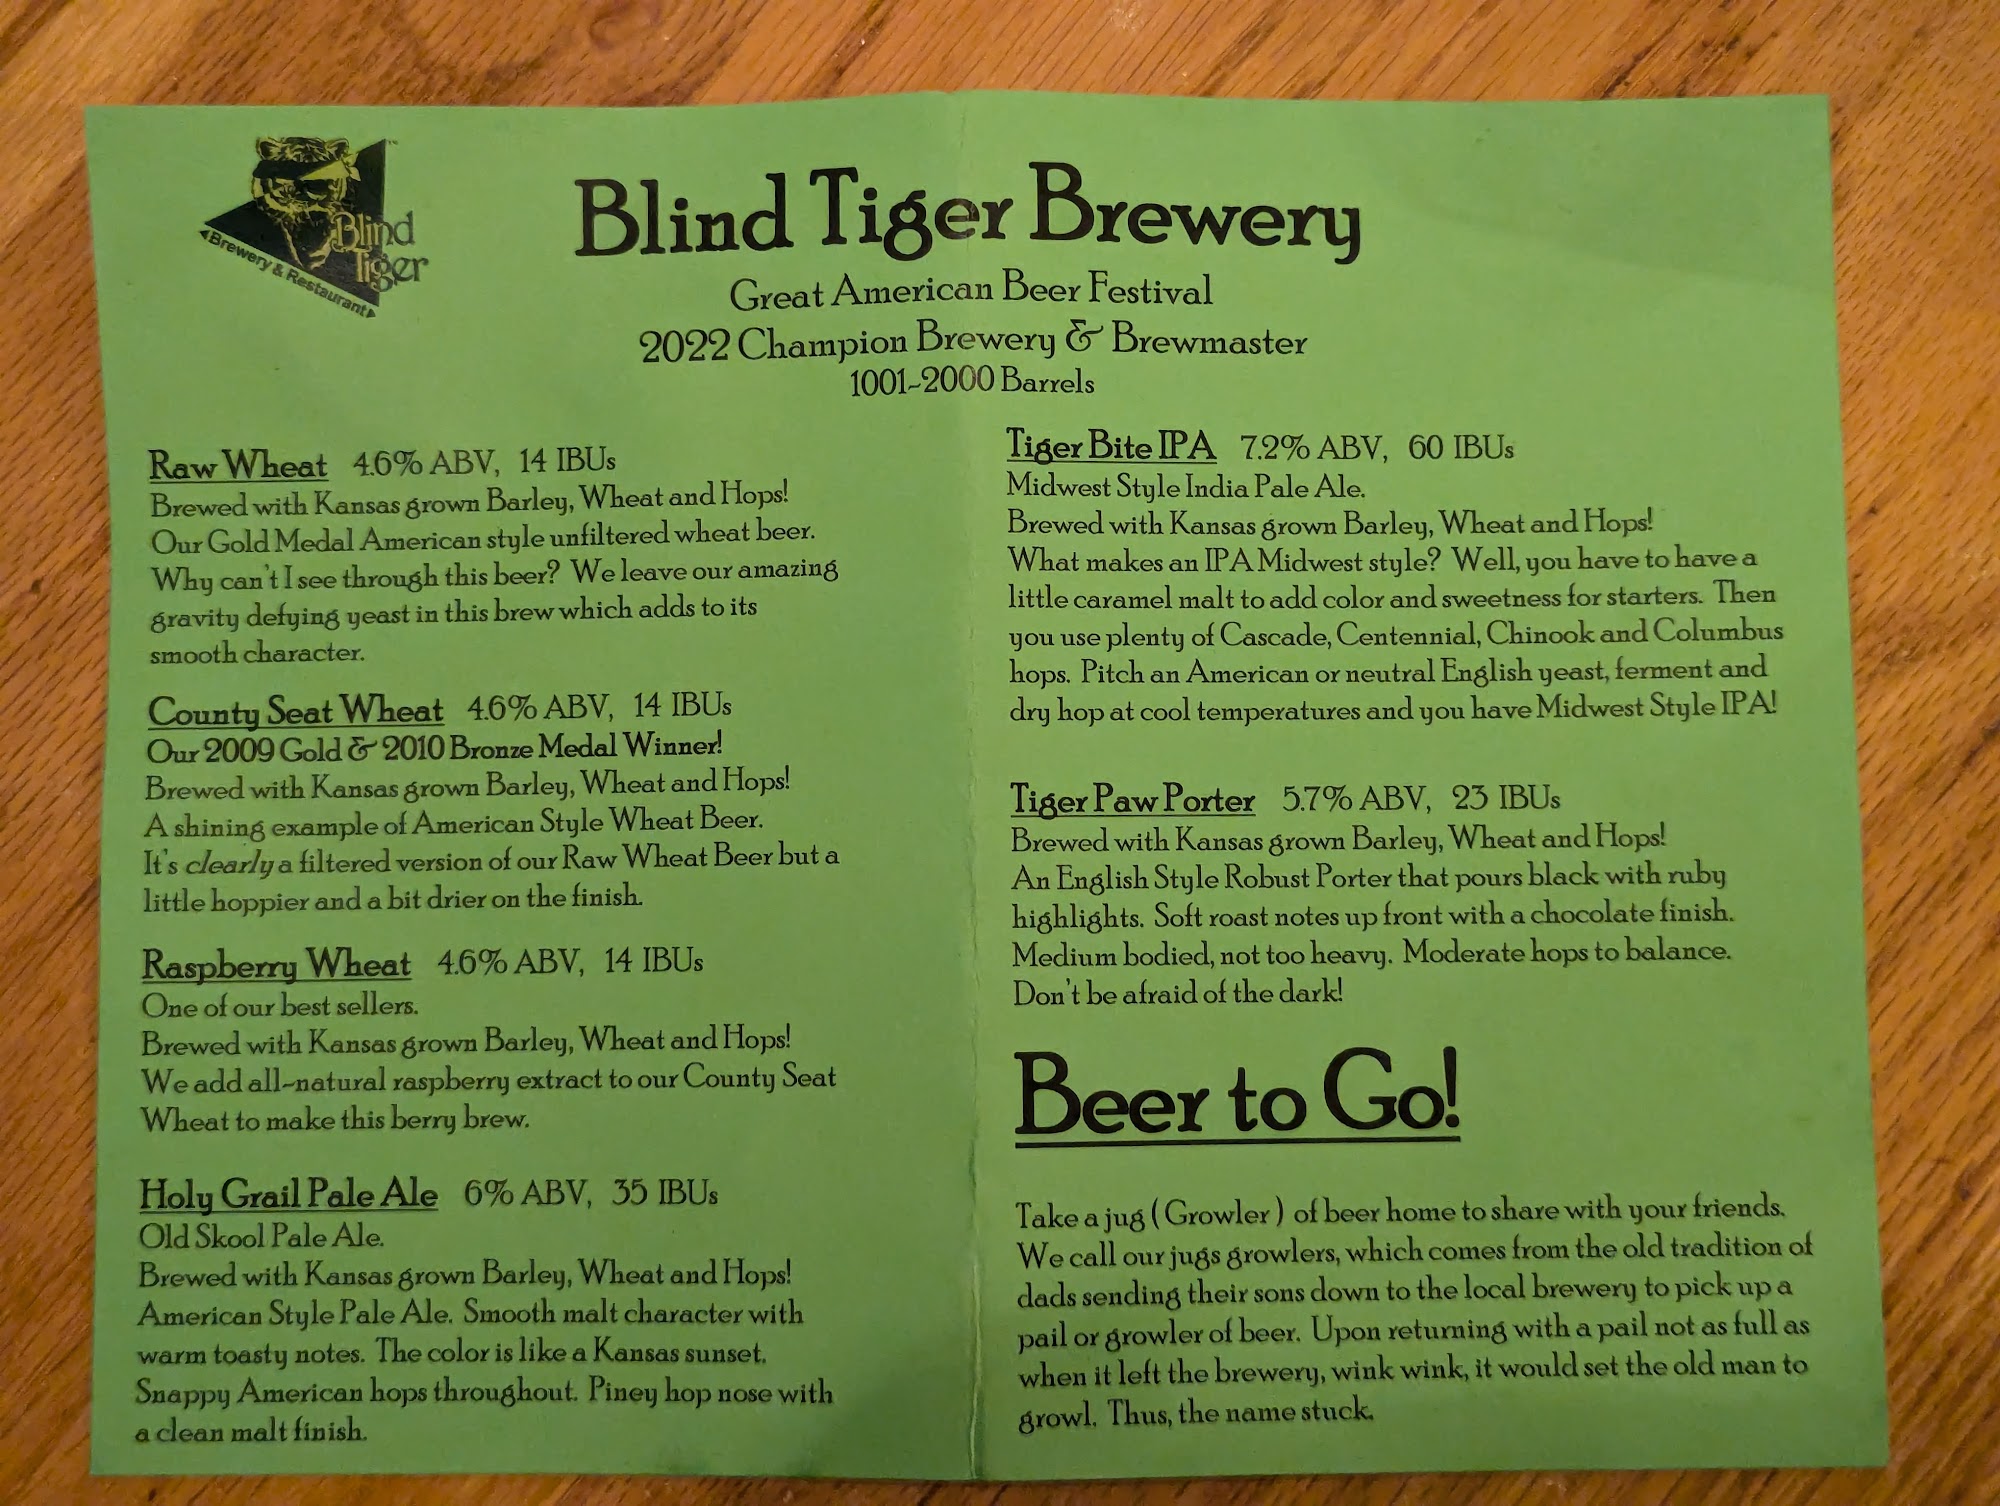 Blind
Tiger
Brewery & Restaurant
™
Blind Tiger Brewery
Great American Beer Festival
2022 Champion Brewery & Brewmaster
1001-2000 Barrels
Raw Wheat 4.6% ABV, 14 IBUs
Brewed with Kansas grown Barley, Wheat and Hops!
Our Gold Medal American style unfiltered wheat beer.
Why can't I see through this beer? We leave our amazing
gravity defying yeast in this brew which adds to its
smooth character.
County Seat Wheat 4.6% ABV, 14 IBUs
Our 2009 Gold & 2010 Bronze Medal Winner!
Brewed with Kansas grown Barley, Wheat and Hops!
A shining example of American Style Wheat Beer.
It's clearly a filtered version of our Raw Wheat Beer but a
little hoppier and a bit drier on the finish.
Raspberry Wheat 4.6% ABV, 14 IBUs
One of our best sellers.
Brewed with Kansas grown Barley, Wheat and Hops!
We add all-natural raspberry extract to our County Seat
Wheat to make this berry brew.
Holy Grail Pale Ale 6% ABV, 35 IBUs
Old Skool Pale Ale.
Brewed with Kansas grown Barley, Wheat and Hops!
American Style Pale Ale. Smooth malt character with
warm toasty notes. The color is like a Kansas sunset.
Snappy American hops throughout. Piney hop nose with
a clean malt finish.
Tiger Bite IPA 7.2% ABV, 60 IBUs
Midwest Style India Pale Ale.
Brewed with Kansas grown Barley, Wheat and Hops!
What makes an IPA Midwest style? Well, you have to have a
little caramel malt to add color and sweetness for starters. Then
you use plenty of Cascade, Centennial, Chinook and Columbus
hops. Pitch an American or neutral English yeast, ferment and
dry hop at cool temperatures and you have Midwest Style IPA!
Tiger Paw Porter 5.7% ABV, 23 IBUs
Brewed with Kansas grown Barley, Wheat and Hops!
An English Style Robust Porter that pours black with ruby
highlights. Soft roast notes up front with a chocolate finish.
Medium bodied, not too heavy. Moderate hops to balance.
Don't be afraid of the dark!
Beer to Go!
Take a jug ( Growler ) of beer home to share with your friends.
We call our jugs growlers, which comes from the old tradition of
dads sending their sons down to the local brewery to pick up a
pail or growler of beer. Upon returning with a pail not as full as
when it left the brewery, wink wink, it would set the old man to
growl. Thus, the name stuck.